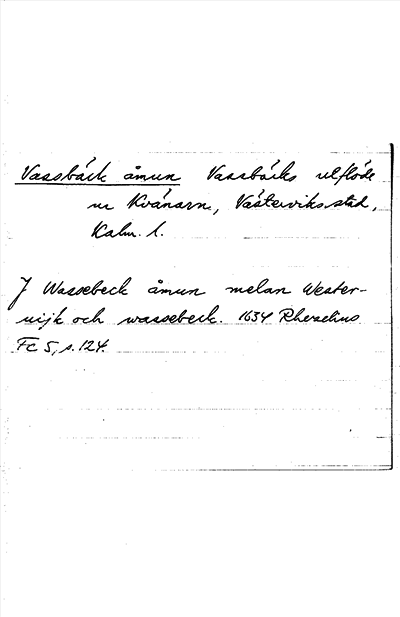 Vassbäck åmun Vassbäcks utflöde
ur Kvänarn, Västerviks stad,
Kalm. l.
J Wassebeck åmun melan Wester-
wijk och wassebeck. 1634 Rhezelius
Fc 5, s. 124.